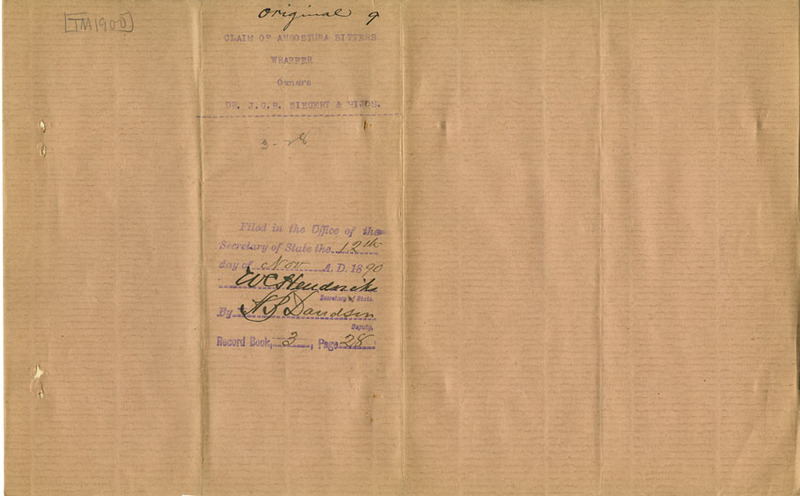 TM1900
Original 9
CLAIM OF ANGOSTURA BITTERS
WRAPPER
Owners
DR. J.G.B. SIEGERT & HIJOS.
3-28
Filed in the Office of the
Secretary of State the 12th
day of Nov A.D. 1890
W C Hendricks
Secretary of State.
By Davidson
Deputy.
Record Book, 3, Page 28